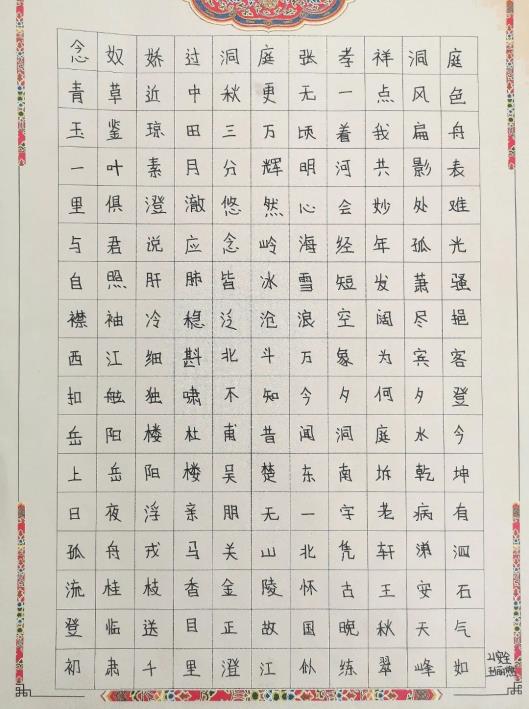 念奴娇过洞庭张孝祥洞庭
青草近中秋更无一点风色
玉鉴琼田三万顷着我扁舟
一叶素月分辉明河共影表
里俱澄澈悠然心会妙处难
与君说应念岭海经年孤光
自照肝肺皆冰雪短发萧骚
襟袖冷稳泛沧浪空阔尽挹
西江细斟北斗万象为宾客
扣舷独啸不知今夕何夕登
岳阳楼杜甫昔闻洞庭水今
上岳阳楼吴楚东南坼乾坤
日夜浮亲朋无一字老病有
孤舟戎马关山北凭轩涕泗
流桂枝香金陵怀古王安石
登临送目正故国晚秋天气
初肃千里澄江似练翠峰如
21安全